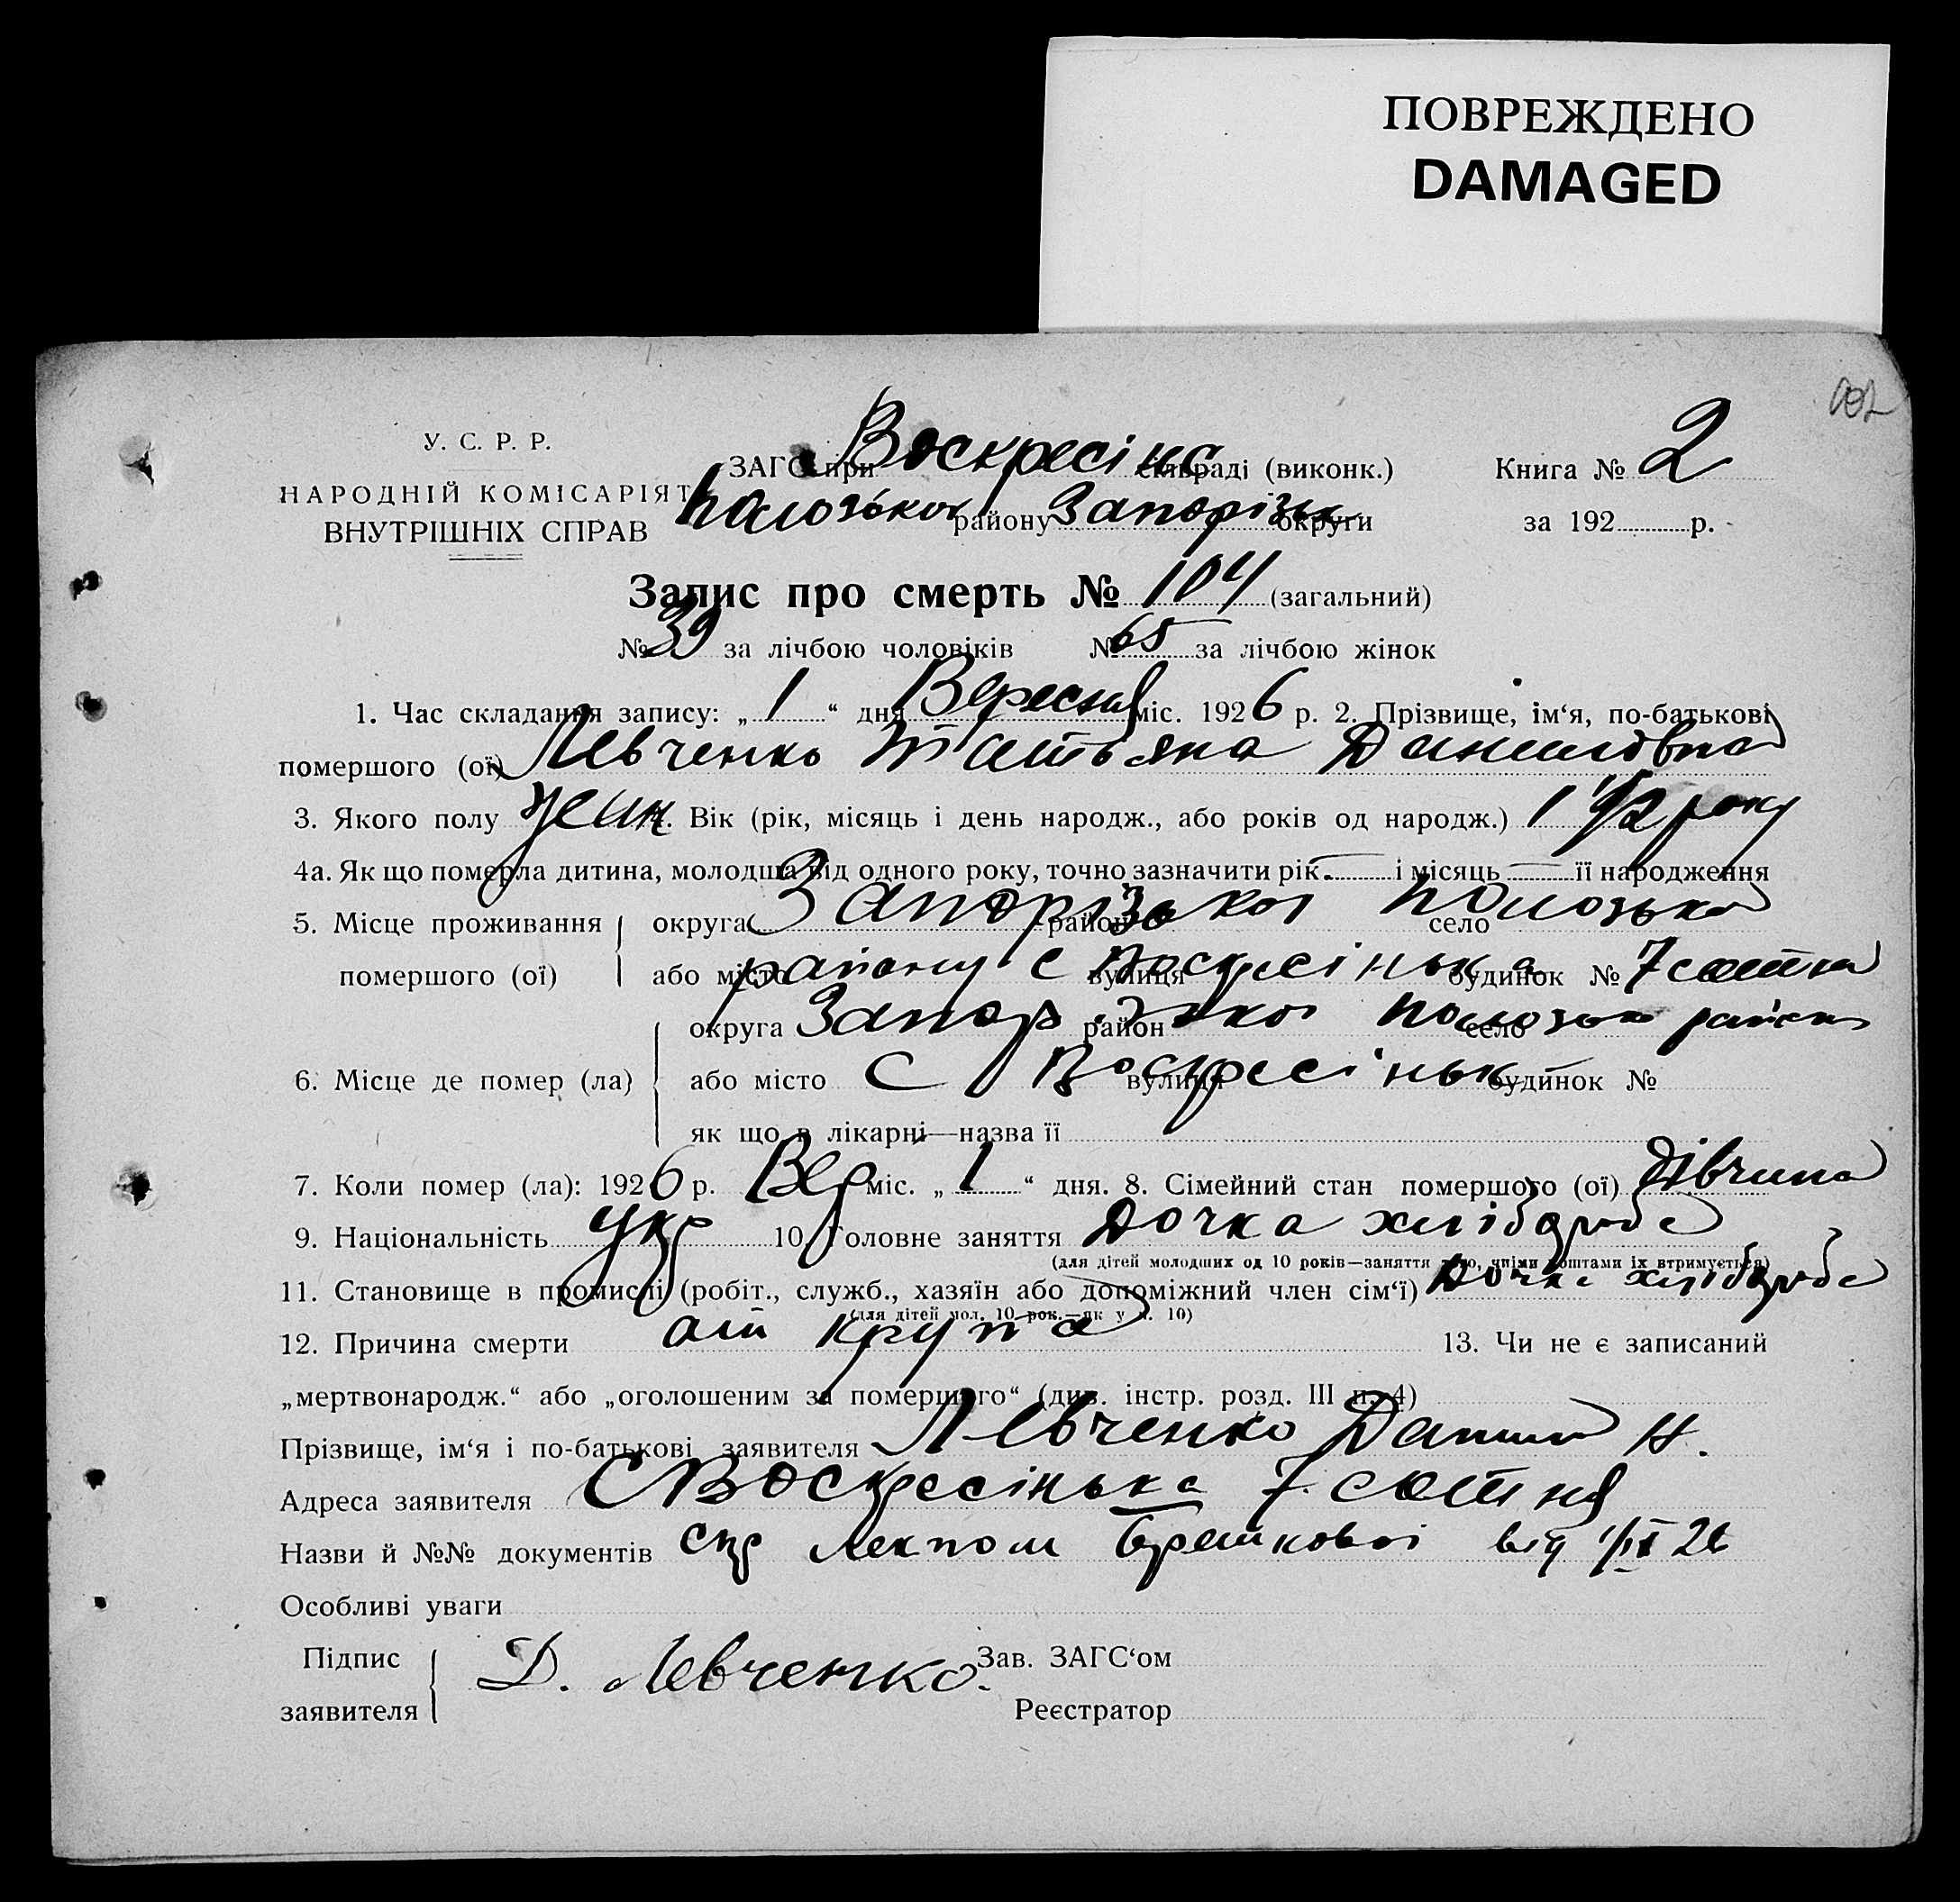 ПОВРЕЖДЕНО
DAMAGED
У. С. Р. Р.
НАРОДНІЙ КОМІСАРІЯТ
ВНУТРІШНІХ СПРАВ
ЗАГС при Воскресінс сільраді (виконк.)
Полозької району Запорізьк округи
Книга № 2
за 192 р.
Запис про смерть № 104 (загальний)
№ 39 за лічбою чоловіків № 65 за лічбою жінок
1. Час складання запису: „ 1 “ дня Вересня міс. 1926 р. 2. Прізвище, ім‘я, по-батькові
помершого (ої) Левченко Татьяна Даниловна
3. Якого полу жін. Вік (рік, місяць і день народж., або років од народж.) 1 1/2 року
4а. Як що померла дитина, молодша від одного року, точно зазначити рік — і місяць — її народження
5. Місце проживання помершого (ої) округа Запорізької район Полозько село
району с Воскресінька або місто вулиця будинок № 7 сотня
6. Місце де помер (ла) округа Запорізької район Полозьк село район
або місто с Воскресіньк вулиця будинок №
як що в лікарні—назва її
7. Коли помер (ла): 1926 р. Вер міс. „ 1 “ дня. 8. Сімейний стан помершого (ої) дівчина
9. Національність Укр 10. Головне заняття Дочка хлібороба
(для дітей молодших од 10 років—заняття того, чиїми коштами їх втримується)
11. Становище в промислі (робіт., служб., хазяїн або допоміжний член сім‘ї) Дочка хлібороба
(для дітей мол. 10 рок.—як у п. 10)
12. Причина смерти от крупа 13. Чи не є записаний
„мертвонародж.“ або „оголошеним за помершого“ (див. інстр. розд. III п. 4)
Прізвище, ім‘я і по-батькові заявителя Левченко Данило Н.
Адреса заявителя с Воскресінька 7 сотня
Назви й №№ документів спр лекпом від 1/IX 26
Особливі уваги
Підпис заявителя Д. Левченко.
Зав. ЗАГС‘ом
Реєстратор